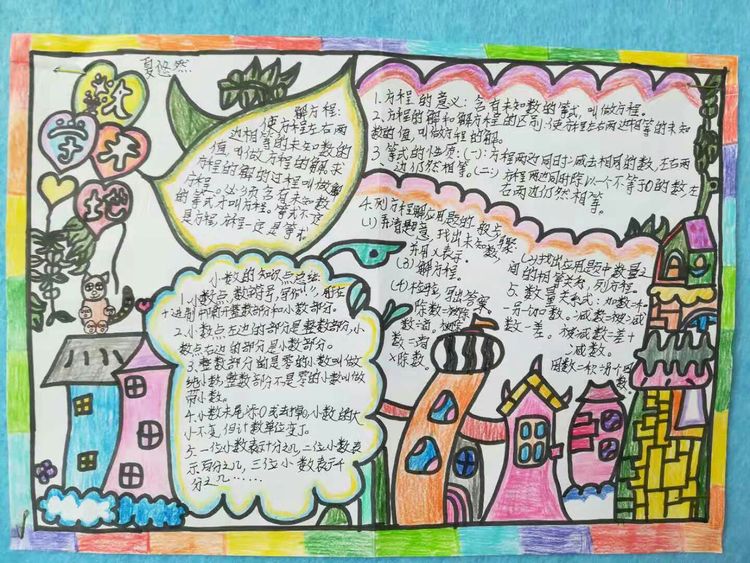 夏悠然
数学天地
解方程:
使方程左右两
边相等的未知数的
值,叫做方程的解,求
方程的解的过程叫做解
方程。
必须含有未知数
的等式才叫方程。等式不一定
是方程,方程一定是等式。
1.方程的意义:含有未知数的等式,叫做方程。
2.方程的解和解方程的区别:使方程左右两边相等的未知
数的值,叫做方程的解。
3.等式的性质:(一)方程两边同时减去相同的数,左右两
边仍然相等。(二)方程两边同时除以一个不等于0的数,左
右两边仍然相等。
4.列方程解应用题的步骤
(1)弄清题意,找出未知数,
并用x表示。
(3)解方程。
(4)检验,写出答案
(2)找出应用题中数量之
间的相等关系,列方程。
5.数量关系式:加数=和
-另一加数。减数=被减
数-差。被减数=差+
减数。
因数=积÷另一个因
数。
除数=被除
数÷商,被除
数=商
×除数。
小数的知识点总结
1.小数点,数学符号,写作“.”,用于
十进制中隔开整数部分和小数部分。
2.小数点左边的部分是整数部分,小
数点右边的部分是小数部分。
3.整数部分是零的小数叫做
纯小数,整数部分不是零的小数叫做
带小数。
4.小数末尾添0或去掉0,小数的大
小不变,但计数单位变了。
5.一位小数表示十分之几,二位小数表
示百分之几,三位小数表示千
分之几……